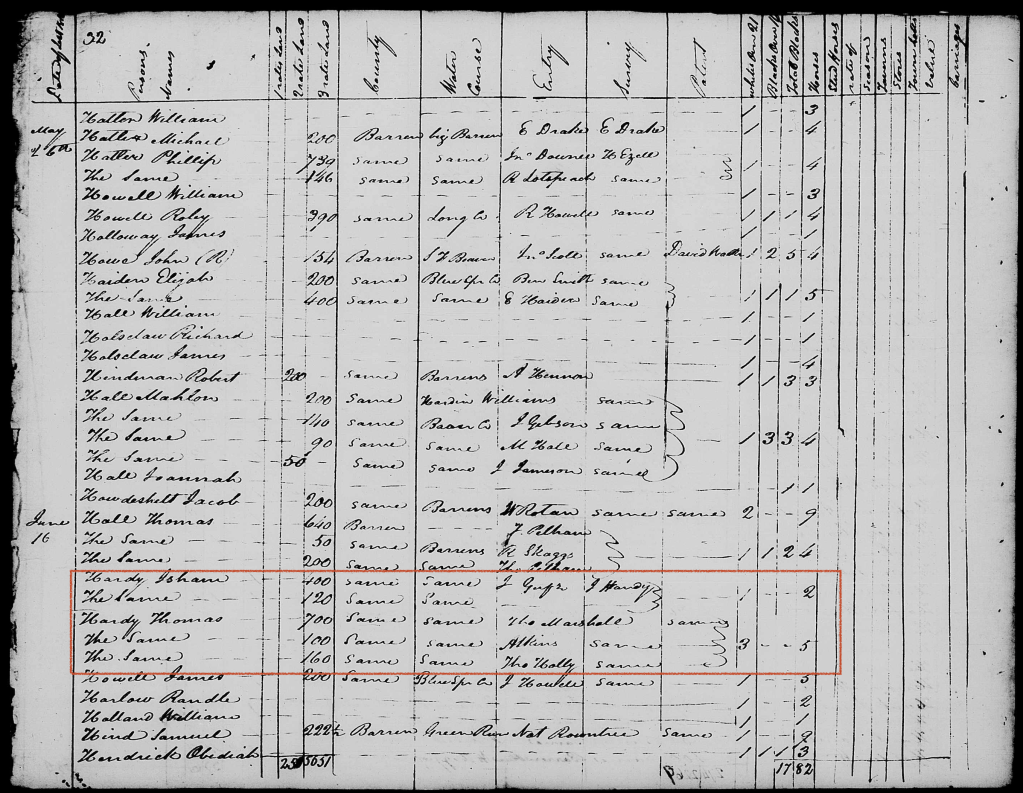 32
Persons Names 1 rate land 2 rate land 3 rate land County Water Course Entry Survey Patent White Over 21 Blacks Over 16 Total Blacks Horses Stud Horses rate of Season Taverns Stores Town Lotts Value Carriages
Hatton William 1 3
May 26th
Hatler Michael 200 Barren big Barren E Drake E Drake 1 4
Hatler Phillip 739 Same Same Jno Downee H Ezell
The Same 146 Same Same R Lotspeach Same 1 4
Howell William 1 3
Howell Roley 390 Same Long Co R Howell Same 1 1 1 4
Holloway James 1 1
Howe John (R) 154 Barren S F Beaver Jno Scott Same David Walke 1 2 5 4
Haiden Elijah 200 Same Blue Spr Co Ben Smith Same
The Same 400 Same Same E Haiden Same 1 1 1 5
Hall William 1 1
Holsclaw Richard 1
Holsclaw James 1 4
Hindman Robert 200 Same Barrens A Hennon 1 1 3 3
Hall Mahlon 200 Same Hardin Williams Same
The Same 140 Same Beaver Co J Gibson Same
The Same 90 Same Same M Hall Same 1 3 3 4
The Same 50 Same Same J Jameson Same
Hall Joannah 1 1
Howdeshelt Jacob 200 Same Barrens W Rotan Same Same 2 9
June 16
Hall Thomas 640 Barren J Pelham
The Same 50 Same Barrens R Skaggs
The Same 200 Same Same Tho Pelham 1 1 2 4
Hardy Isham 400 Same Same J Guffy J Hardy
The Same 120 Same Same 1 2
Hardy Thomas 700 Same Same Tho Marshall Same
The Same 100 Same Same Atkins Same 3 5
The Same 160 Same Same Tho Holly Same
Howell James 200 Same Blue Spr Co J Howell Same 1 5
Harlow Randle 1 2
Holland William 1 1
Hind Samuel 222½ Barren Green River Nat Rountree Same 1 2
Hendrick Obediah 1 1 1 3
250 5051 17 82